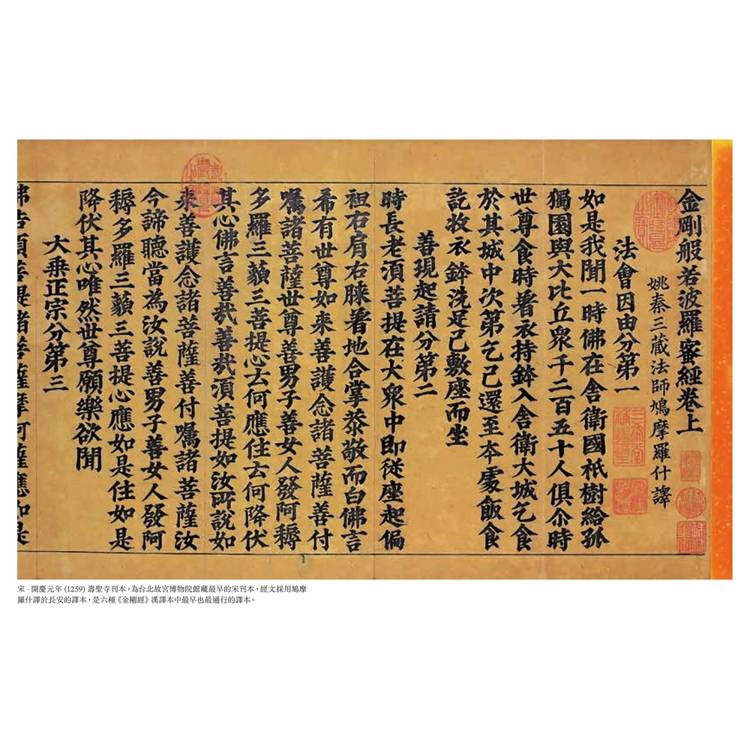 金剛般若波羅蜜經卷上
姚秦三藏法師鳩摩羅什譯
法會因由分第一
如是我聞一時佛在舍衛國祇樹給孤
獨園與大比丘衆千二百五十人俱尒時
世尊食時著衣持鉢入舍衛大城乞食
於其城中次第乞已還至本處飯食
訖收衣鉢洗足已敷座而坐
善現起請分第二
時長老湏菩提在大衆中即從座起偏
袒右肩右膝著地合掌恭敬而白佛言
希有世尊如來善護念諸菩薩善付
囑諸菩薩世尊善男子善女人發阿耨
多羅三藐三菩提心云何應住云何降伏
其心佛言善哉善哉湏菩提如汝所說如
來善護念諸菩薩善付囑諸菩薩汝
今諦聽當為汝說善男子善女人發阿
耨多羅三藐三菩提心應如是住如是
降伏其心唯然世尊願樂欲聞
大乗正宗分第三
佛告湏菩提諸菩薩摩訶薩應如是
宋．開慶元年 (1259) 壽聖寺刊本，為台北故宮博物院館藏最早的宋刊本，經文採用鳩摩
羅什譯於長安的譯本，是六種《金剛經》漢譯本中最早也最通行的譯本。